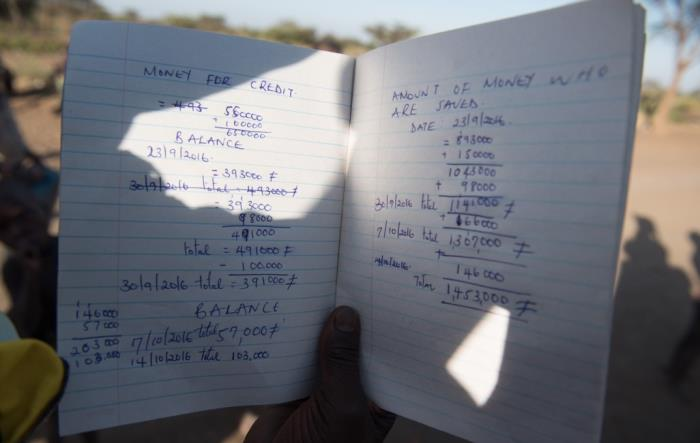 MONEY FOR CREDIT.
= 493 550000
+ 100000
650000
BALANCE
23/9/2016.
= 393000 F
30/9/2016 total = 493000 F
= 393000
98000
491000
total = 491000 F
- 100.000
30/9/2016 total = 391000 F
BALANCE
146000
57000
203000
103.000
7/10/2016 total 57,000 F
14/10/2016 total 103,000
AMOUNT OF MONEY WHO
ARE SAVED.
DATE: 23/9/2016.
= 893000
+ 150000
1043000
+ 98000
30/9/2016 total 1141000 F
+ 166000
7/10/2016 total 1,307,000 F
+
146000
Total 1,453,000 F